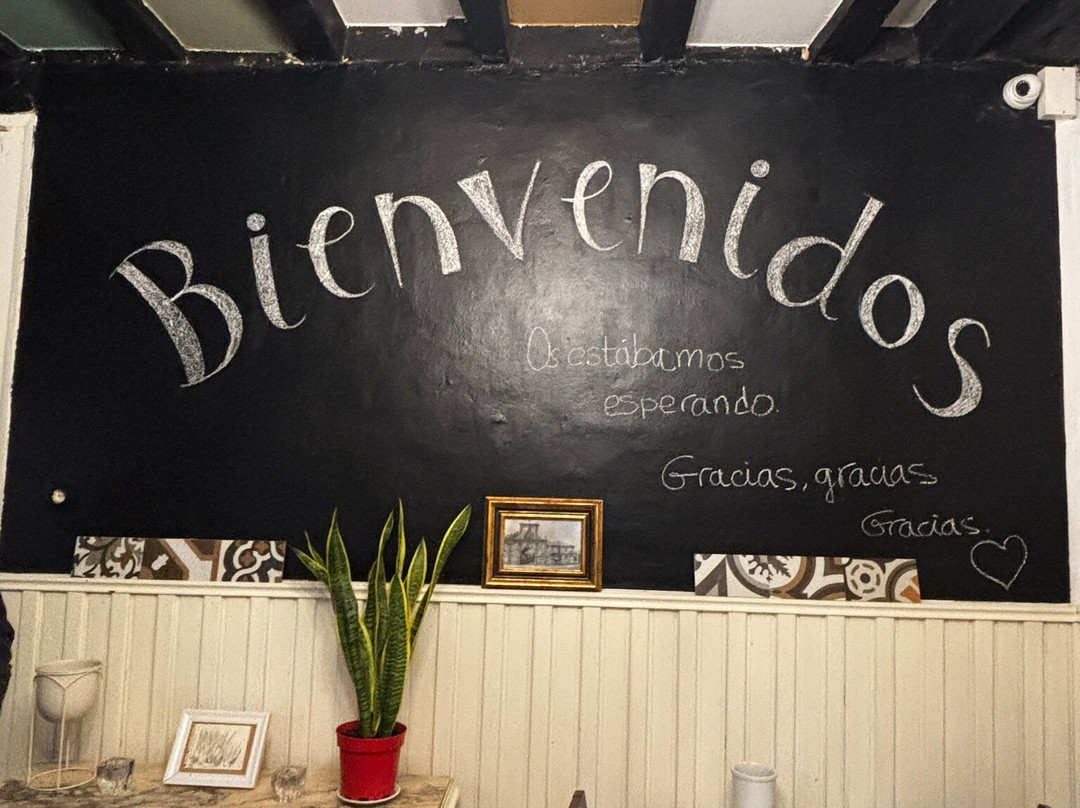 Bienvenidos
Os estábamos
esperando.
Gracias, gracias
Gracias.